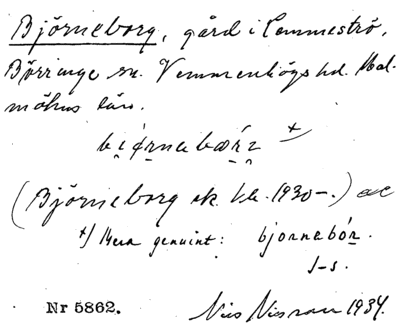 Björneborg, gård i Lemmeströ,
Börringe sn. Vemmenhögs hd. Mal-
möhus län.
(Björneborg ek. kb. 1930-.)
+/ Mera genuint: bjornebór.
J-s.
Nr 5862. Nils Nilsson 1934.